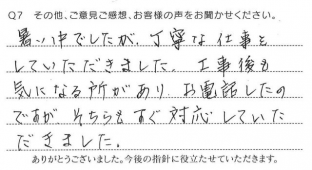 Q7 その他、ご意見ご感想、お客様の声をお聞かせください。
暑い中でしたが、丁寧な仕事を
していただきました。工事後も
気になる所があり、お電話したの
ですが、そちらもすぐ対応していた
だきました。
ありがとうございました。今後の指針に役立たせていただきます。